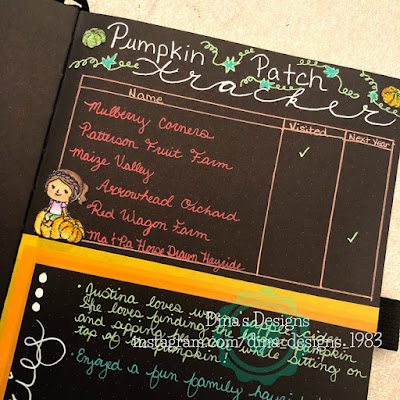 Pumpkin Patch
tracker
Name Visited Next Year
Mulberry Corners
Patterson Fruit Farm ✓
Maize Valley
Arrowhead Orchard
Red Wagon Farm ✓
Ma & Pa Horse Drawn Hayride
• Justina loves
She loves finding the pumpkin
and sipping while sitting on
top of pumpkin!
• Enjoyed a fun family
Dina's Designs
instagram.com/dina_designs_1983